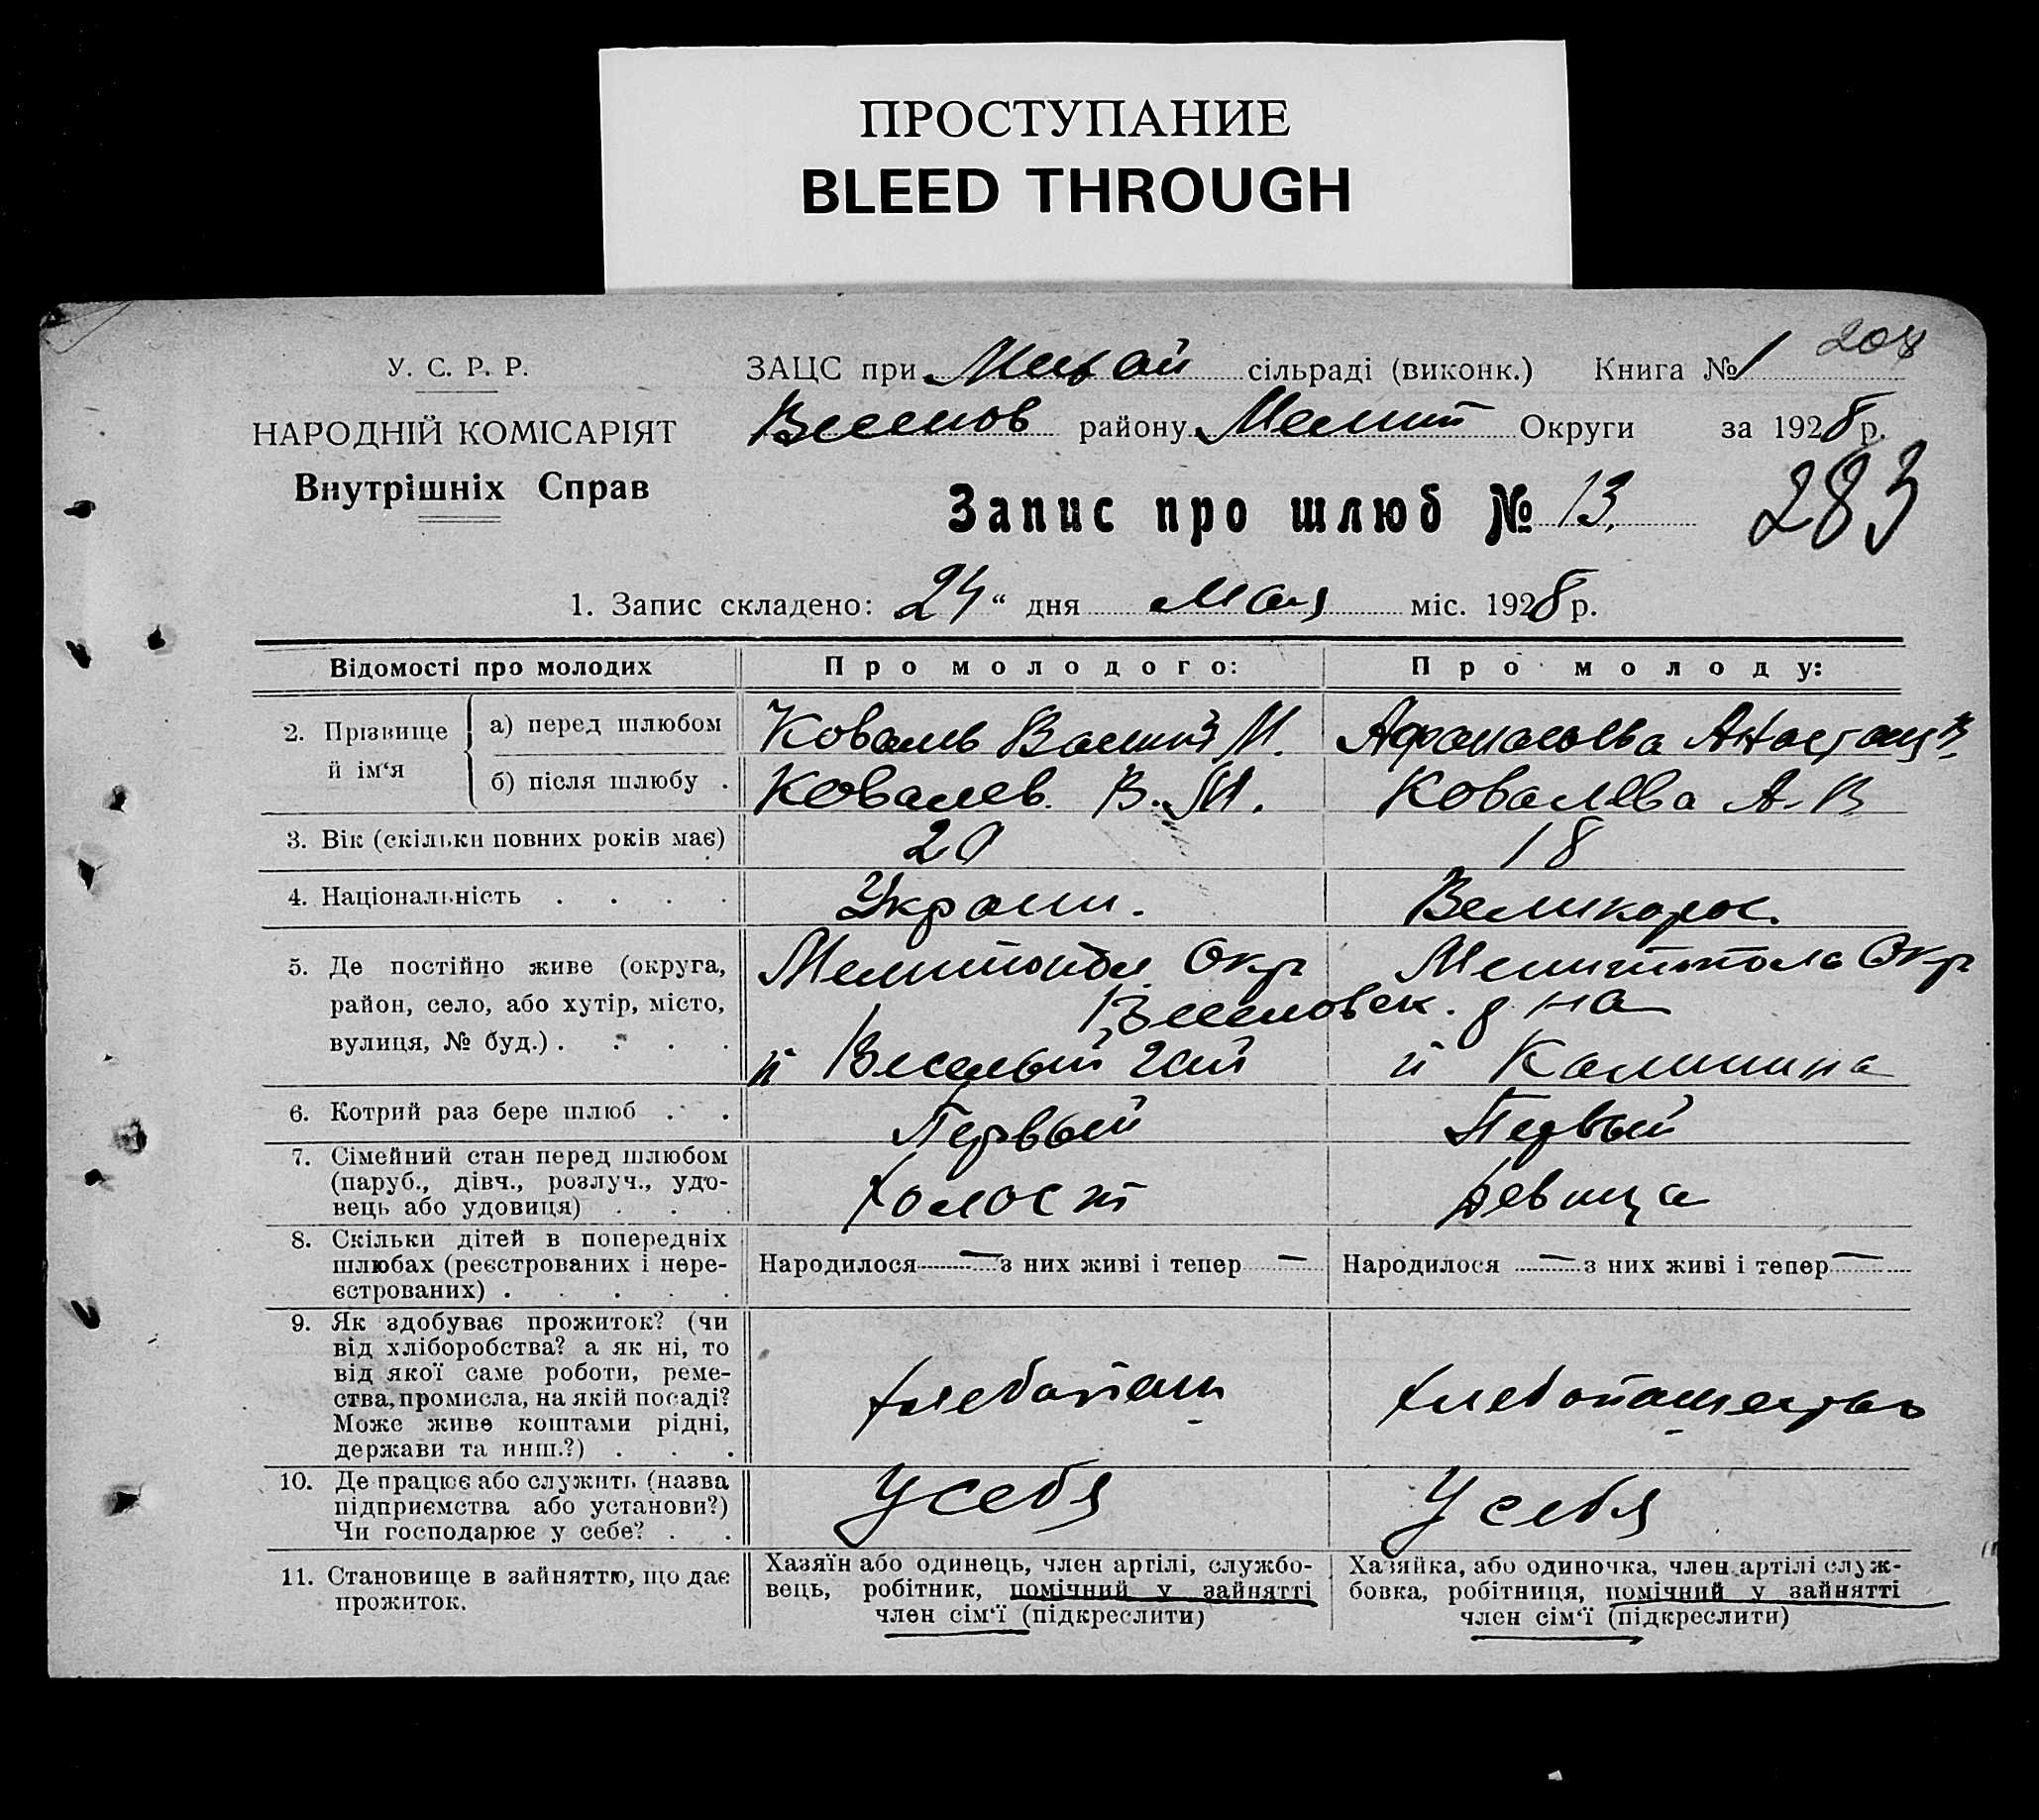 ПРОСТУПАНИЕ
BLEED THROUGH
208
У. С. Р. Р.
ЗАЦС при сільраді (виконк.) Книга № 1
НАРОДНІЙ КОМІСАРІЯТ
Веселов району Мелит Округи за 1928 р.
Внутрішніх Справ
Запис про шлюб № 13.
283
1. Запис складено: 24 “ дня мая міс. 1928 р.
Відомості про молодих Про молодого: Про молоду:
2. Прізвище й ім‘я а) перед шлюбом Коваль М. Афанасьева Анастац В.
б) після шлюбу . Ковалев. В. М. Ковалева А. В
3. Вік (скільки повних років має) 20 18
4. Національність . . . . Украин. Великорос.
5. Де постійно живе (округа, Окр Окр
район, село, або хутір, місто, Веселовск. р на
вулиця, № буд.) . . . . п Веселый гай п Калинина
6. Котрий раз бере шлюб . . Первый Первый
7. Сімейний стан перед шлюбом
(паруб., дівч., розлуч., удо-
вець або удовиця) . . . Холост Девица
8. Скільки дітей в попередніх
шлюбах (реєстрованих і нере- Народилося — з них живі і тепер — Народилося — з них живі і тепер —
єстрованих) . . . . .
9. Як здобуває прожиток? (чи
від хліборобства? а як ні, то
від якої саме роботи, реме-
ства, промисла, на якій посаді? Хлебопаш Хлебопашество
Може живе коштами рідні,
держави та инш.?) . . .
10. Де працює або служить (назва
підприємства або установи?) У себя У себя
Чи господарює у себе? . .
11. Становище в зайняттю, що дає
прожиток.
Хазяїн або одинець, член аргілі, службо-
вець, робітник, помічний у зайнятті
член сім‘ї (підкреслити)
Хазяйка, або одиночка, член артілі служ-
бовка, робітниця, помічний у зайнятті
член сім‘ї (підкреслити)